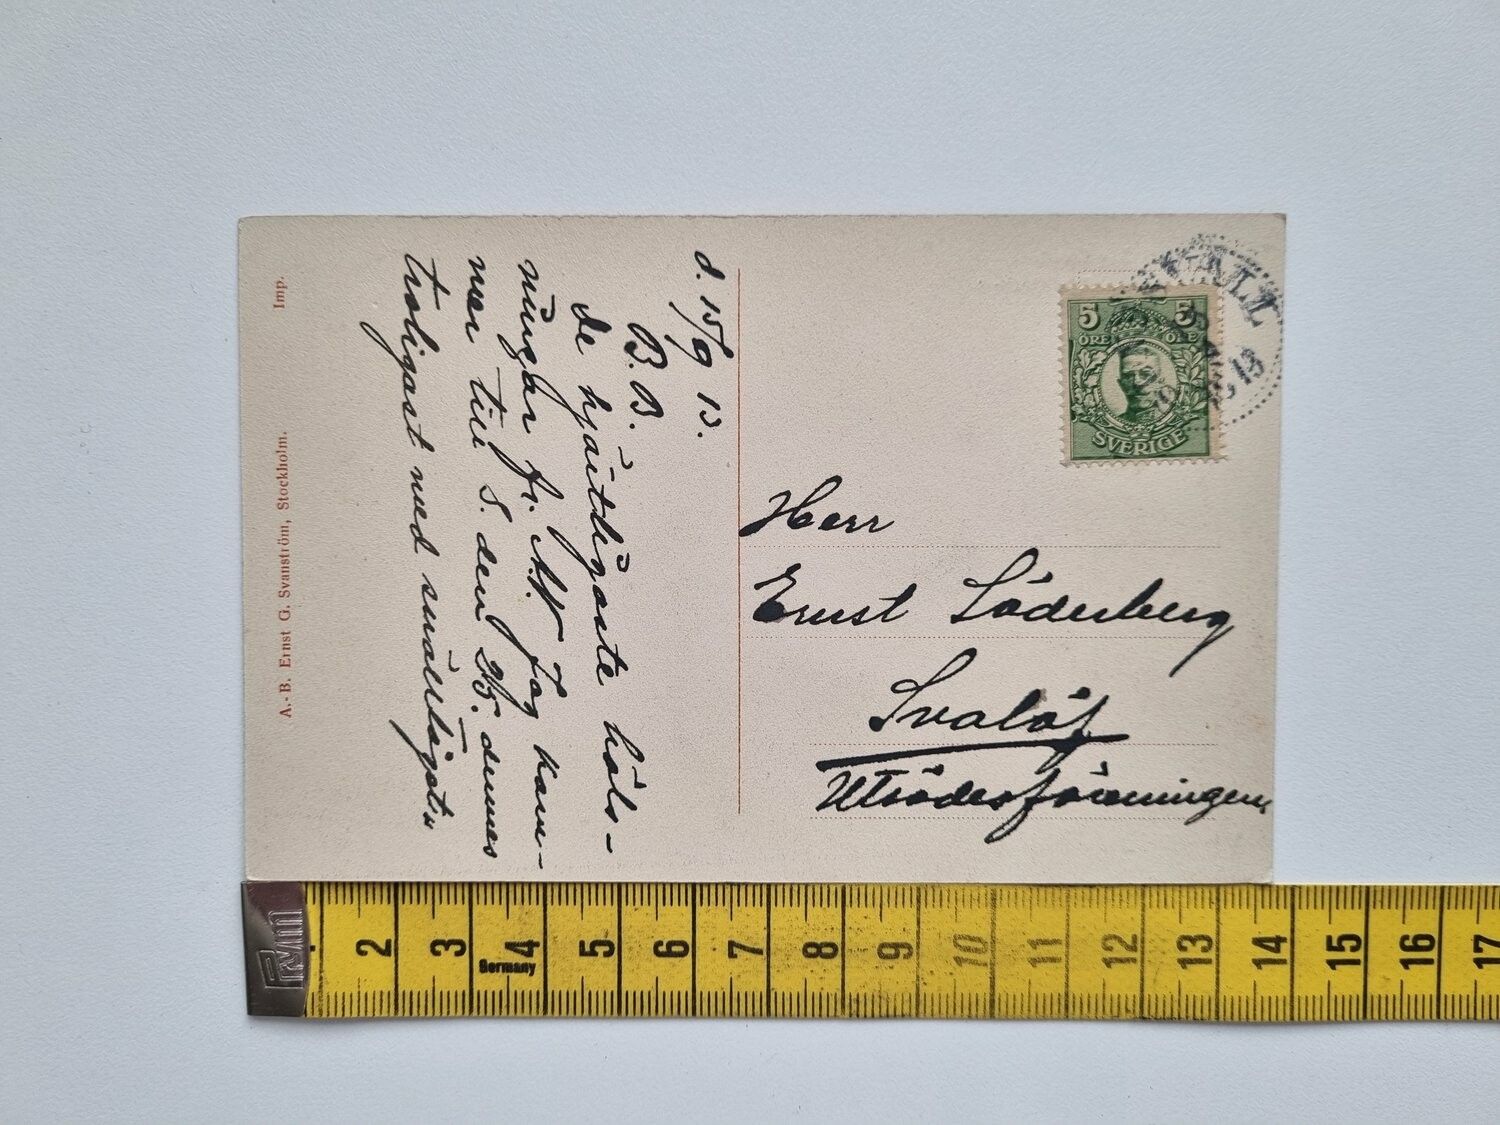 d. 15/9 13.
B. B.
De hjärtligaste häls-
ningar fr. M. Jag kom-
mer till S. den 25. dennes
troligast med snälltåget"
Herr
Ernst Söderberg
Svalöf
Utsädesföreningen
5 5
ÖRE ÖRE
SVERIGE
13
Imp.
A.-B. Ernst G. Svanström, Stockholm.
Prym
2 3 4 5 6 7 8 9 10 11 12 13 14 15 16 17
Germany